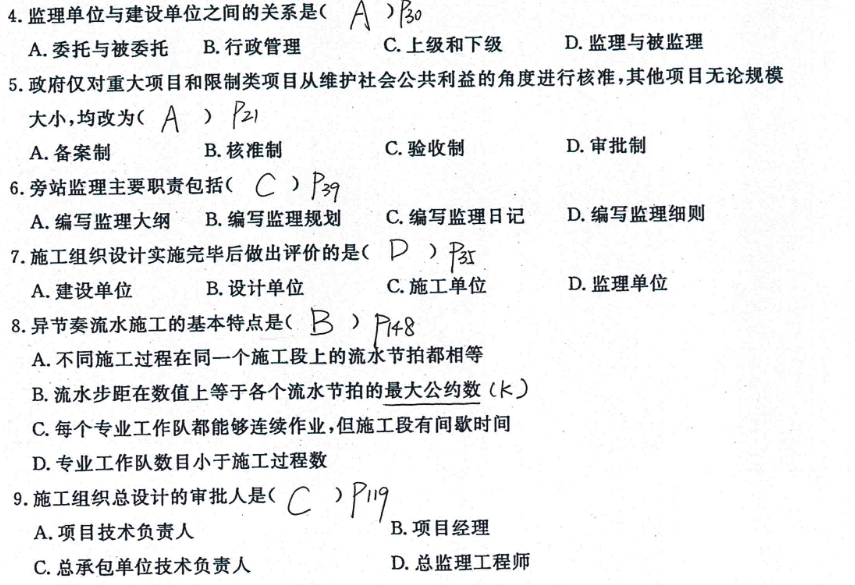 4. 监理单位与建设单位之间的关系是( A )P30
A. 委托与被委托 B. 行政管理 C. 上级和下级 D. 监理与被监理
5. 政府仅对重大项目和限制类项目从维护社会公共利益的角度进行核准,其他项目无论规模
大小,均改为( A ) P21
A. 备案制 B. 核准制 C. 验收制 D. 审批制
6. 旁站监理主要职责包括( C )P39
A. 编写监理大纲 B. 编写监理规划 C. 编写监理日记 D. 编写监理细则
7. 施工组织设计实施完毕后做出评价的是( D )P35
A. 建设单位 B. 设计单位 C. 施工单位 D. 监理单位
8. 异节奏流水施工的基本特点是( B )P148
A. 不同施工过程在同一个施工段上的流水节拍都相等
B. 流水步距在数值上等于各个流水节拍的最大公约数(K)
C. 每个专业工作队都能够连续作业,但施工段有间歇时间
D. 专业工作队数目小于施工过程数
9. 施工组织总设计的审批人是( C )P119
A. 项目技术负责人 B. 项目经理
C. 总承包单位技术负责人 D. 总监理工程师